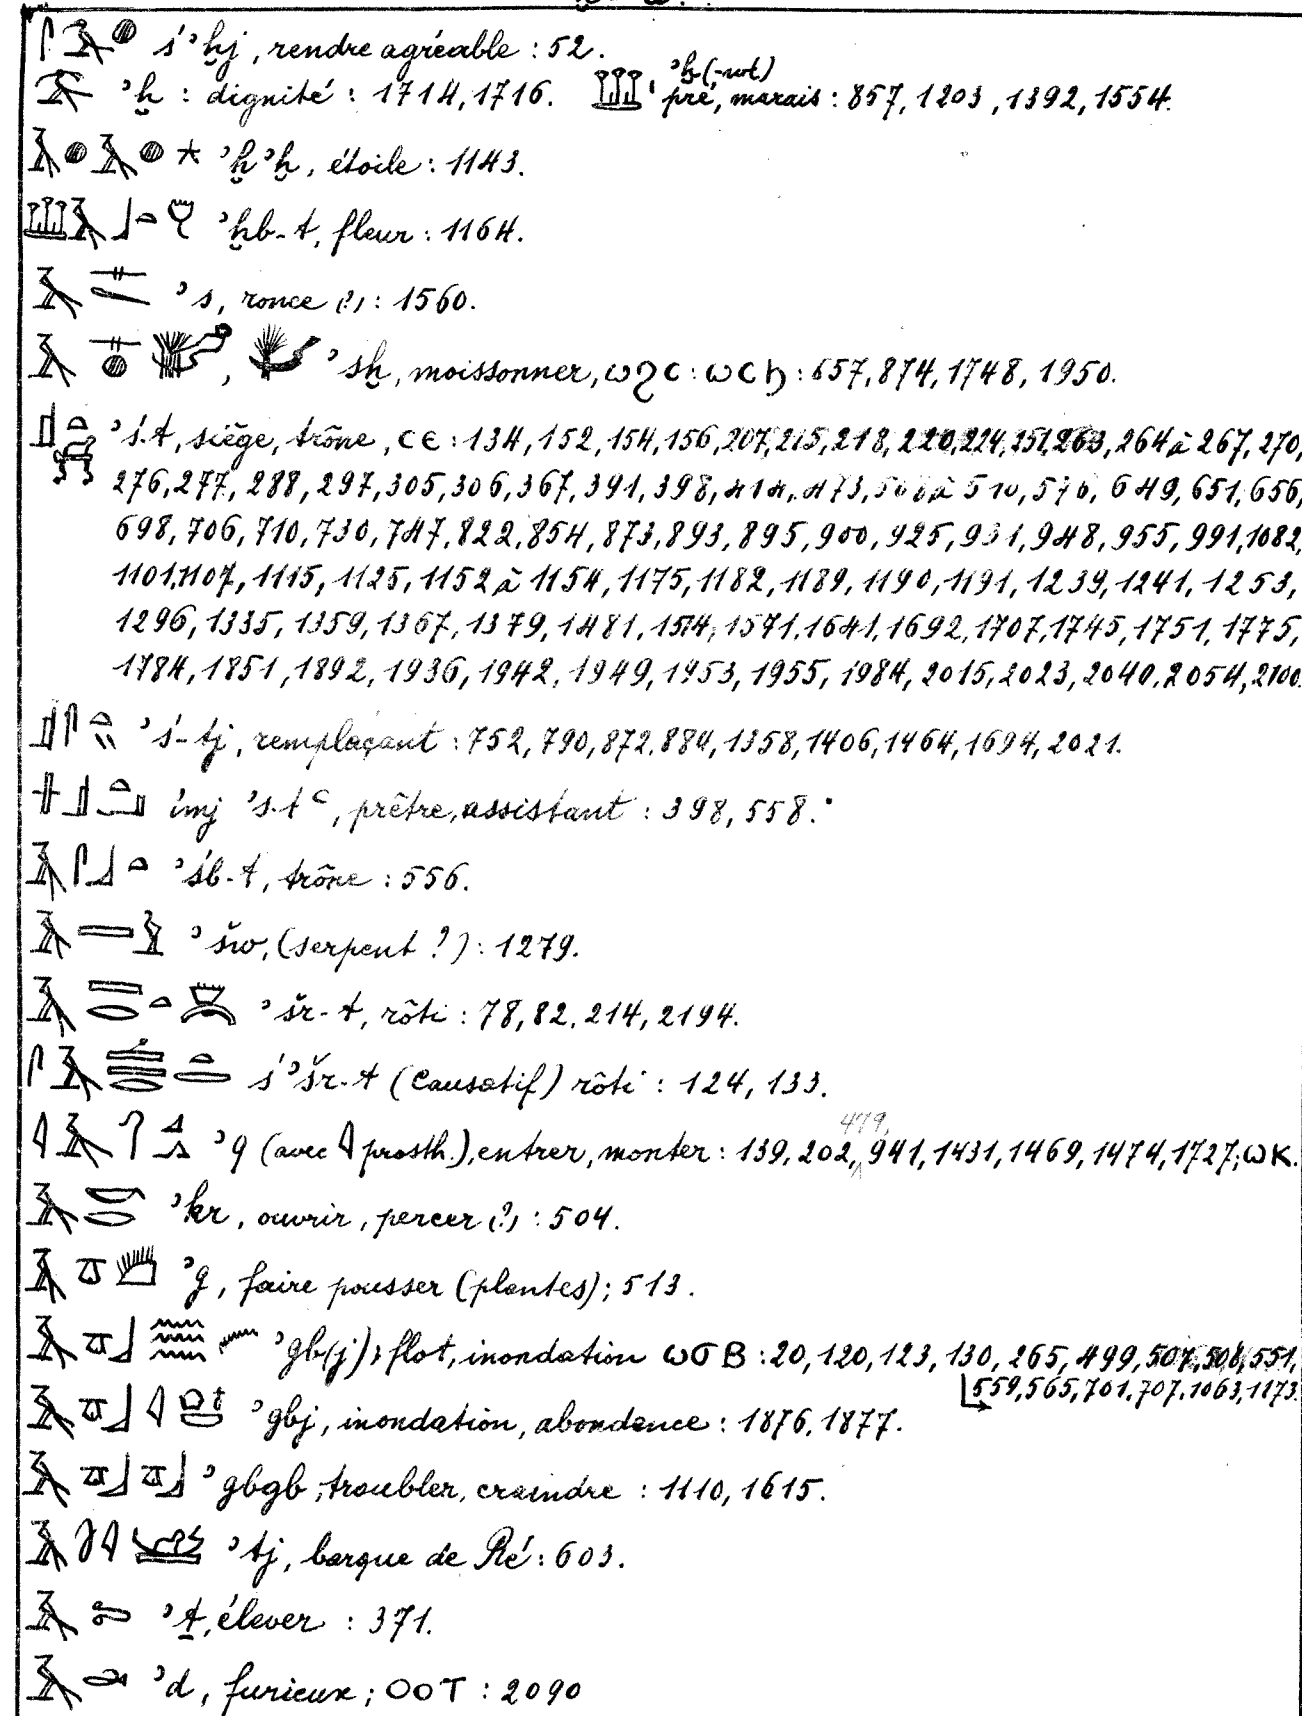 ś ꜣḫj, rendre agréable : 52.
ꜣḫ : dignité : 1714, 1716. ꜣḫ(-wt) pré, marais : 857, 1203, 1392, 1554.
ꜣḫꜣḫ, étoile : 1143.
ꜣḫb-t, fleur : 1164.
ꜣs, ronce (?) : 1560.
, ꜣsḫ, moissonner, ⲱϩⲥ : ⲱⲥϧ : 657, 874, 1748, 1950.
ꜣś.t, siège, trône, ⲥⲉ : 134, 152, 154, 156, 207, 215, 218, 220, 224, 251, 263, 264 à 267, 270,
276, 277, 288, 297, 305, 306, 367, 391, 398, 414, 473, 508 à 510, 576, 649, 651, 656,
698, 706, 710, 730, 747, 822, 854, 873, 893, 895, 900, 925, 931, 948, 955, 991, 1082,
1101, 1107, 1115, 1125, 1152 à 1154, 1175, 1182, 1189, 1190, 1191, 1239, 1241, 1253,
1296, 1335, 1359, 1367, 1379, 1481, 1514, 1571, 1641, 1692, 1707, 1745, 1751, 1775,
1784, 1851, 1892, 1936, 1942, 1949, 1953, 1955, 1984, 2015, 2023, 2040, 2054, 2100.
ꜣś-tj, remplaçant : 752, 790, 872, 884, 1358, 1406, 1464, 1694, 2021.
imj ꜣś.t ꜥ, prêtre, assistant : 398, 558.
ꜣśb-t, trône : 556.
ꜣšw, (serpent ?) : 1279.
ꜣšr-t, rôti : 78, 82, 214, 2194.
ś ꜣšr-t (Causatif) rôti : 124, 133.
ꜣq (avec 𓇋 prosth.), entrer, monter : 139, 202, 479, 941, 1431, 1469, 1474, 1727, ⲱⲕ.
ꜣkr, ouvrir, percer (?) : 504.
ꜣg, faire pousser (plantes) ; 513.
ꜣgb(j) ; flot, inondation ⲱϭⲃ : 20, 120, 123, 130, 265, 499, 507, 508, 551,
559, 565, 701, 707, 1063, 1173.
ꜣgbj, inondation, abondance : 1876, 1877.
ꜣgbgb ; troubler, craindre : 1110, 1615.
ꜣtj, barque de Ré : 603.
ꜣṯ, élever : 371.
ꜣd, furieux ; ⲟⲟⲧ : 2090